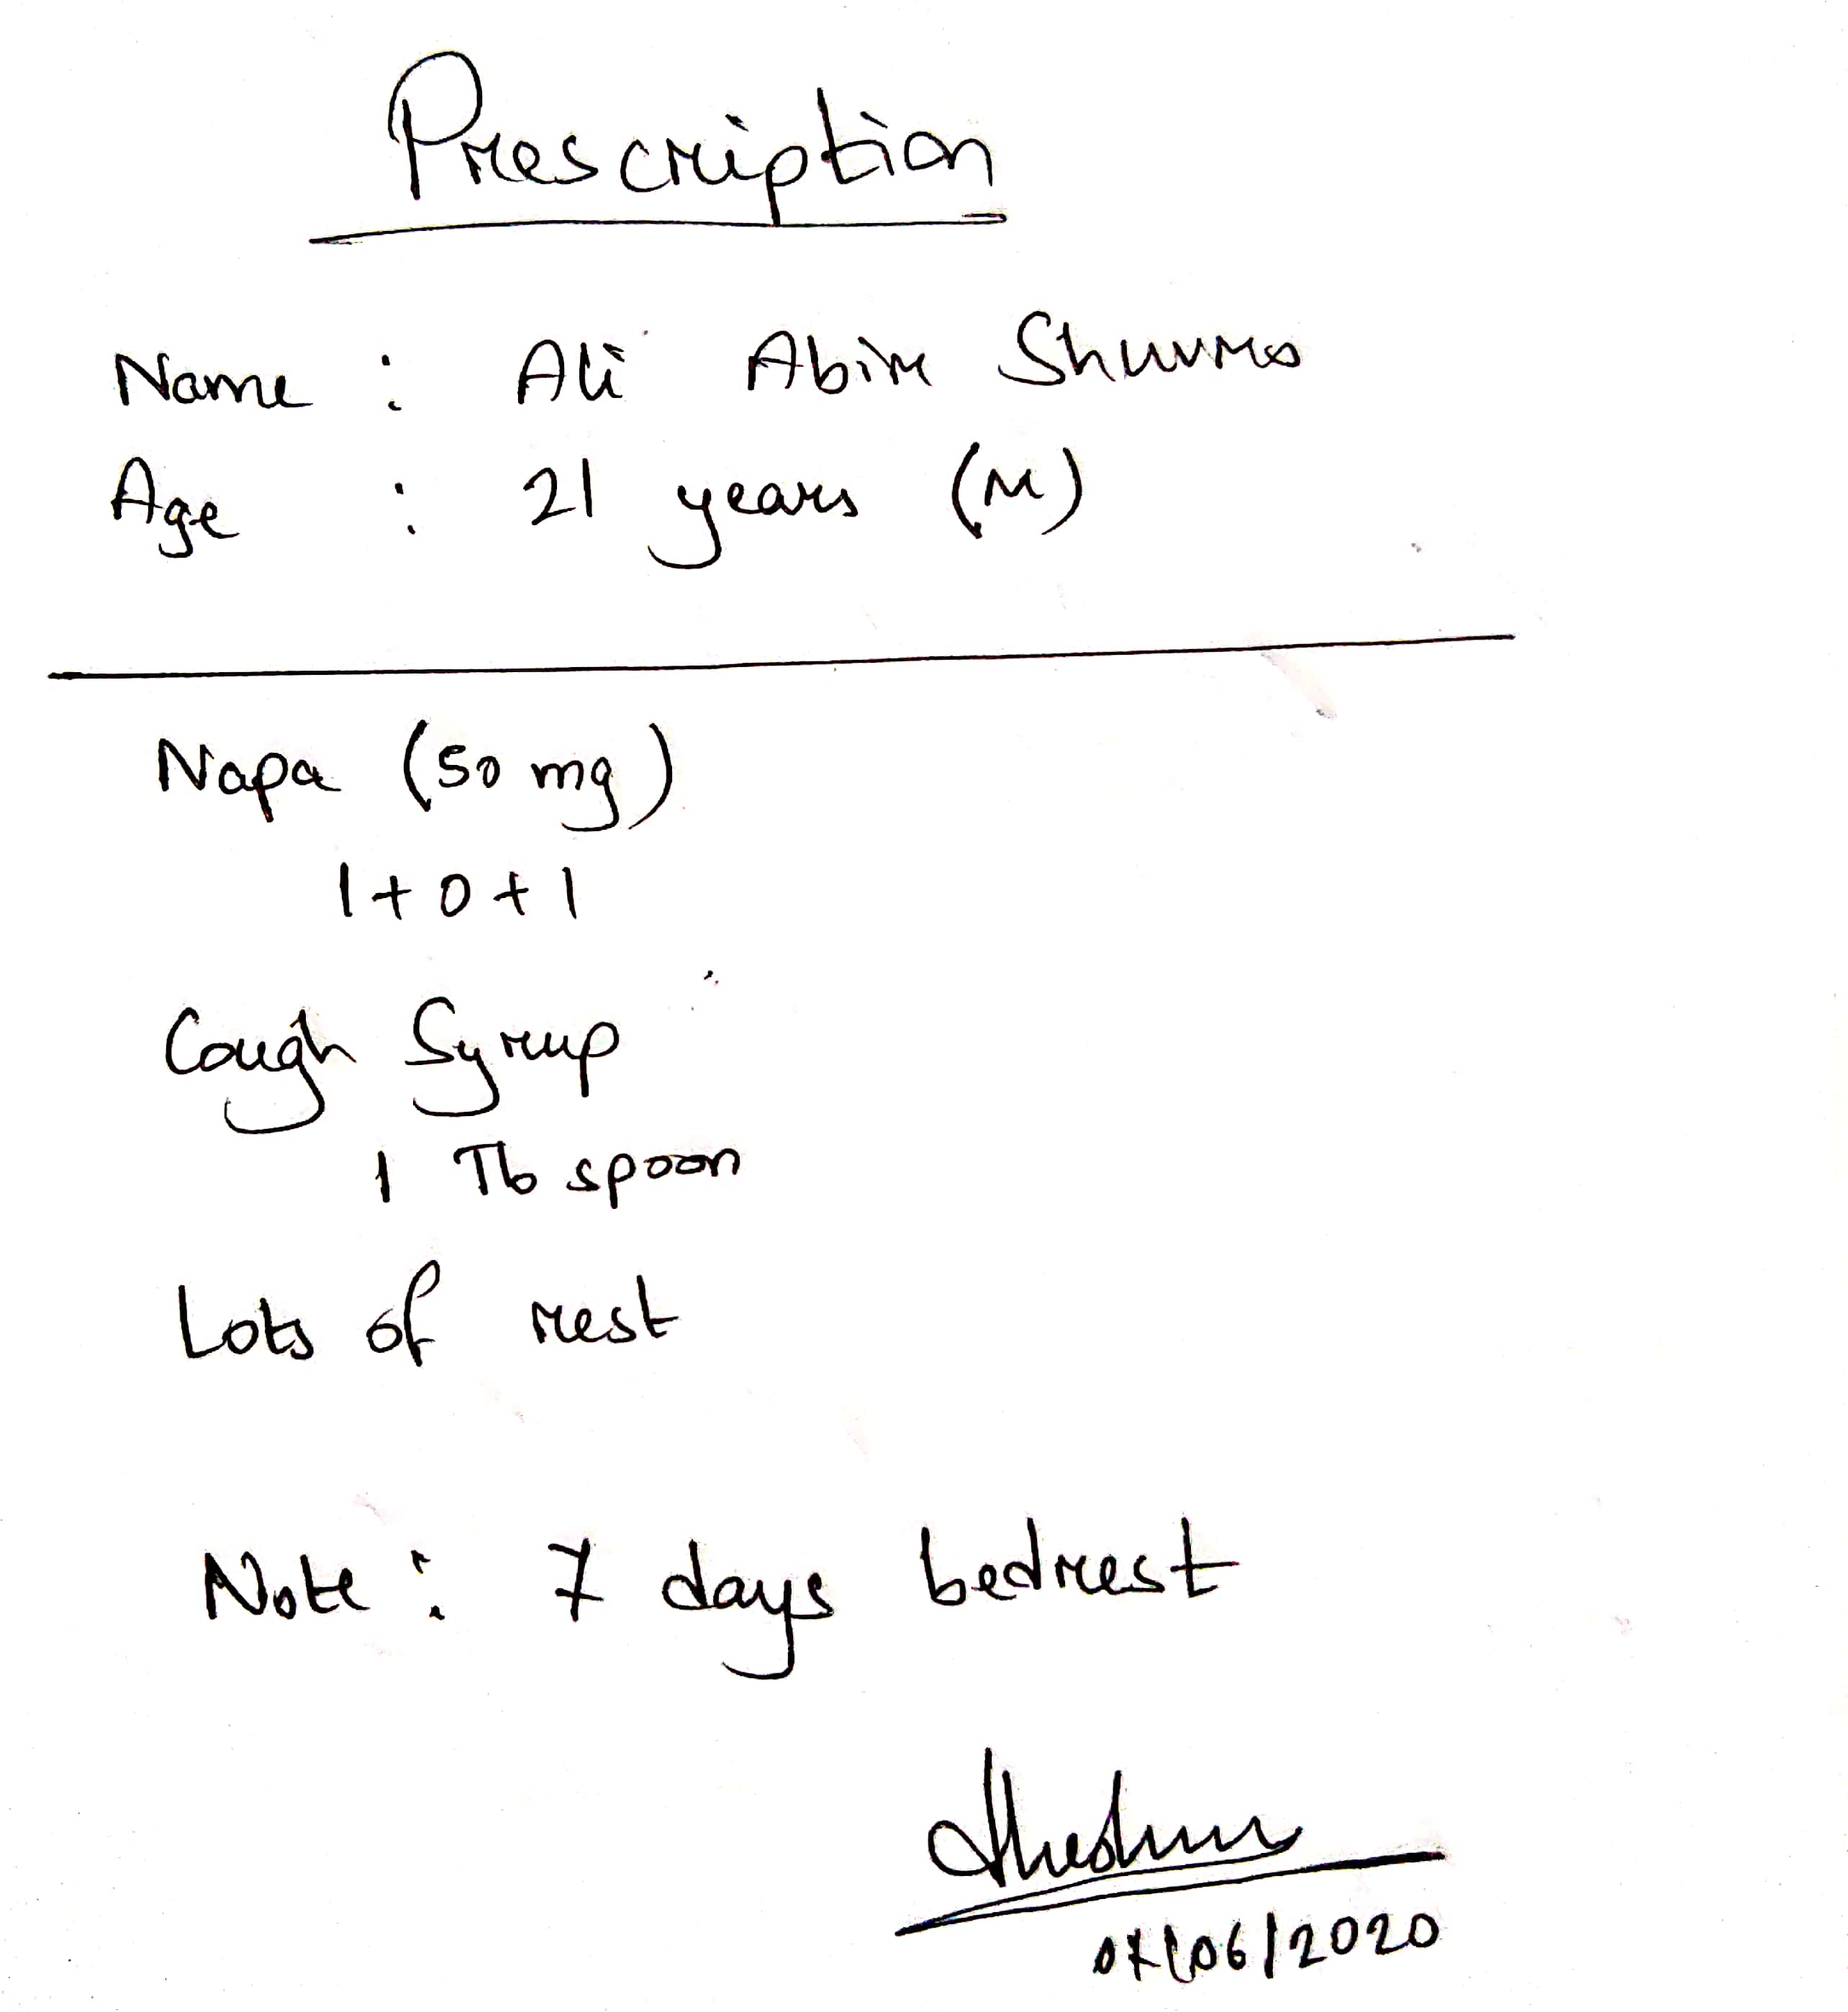 Prescription
Name : Ali Abir Shuvro
Age : 21 years (M)
Napa (50 mg)
1+0+1
Cough Syrup
1 Tb spoon
Lots of rest
Note : 7 days bedrest
07/06/2020